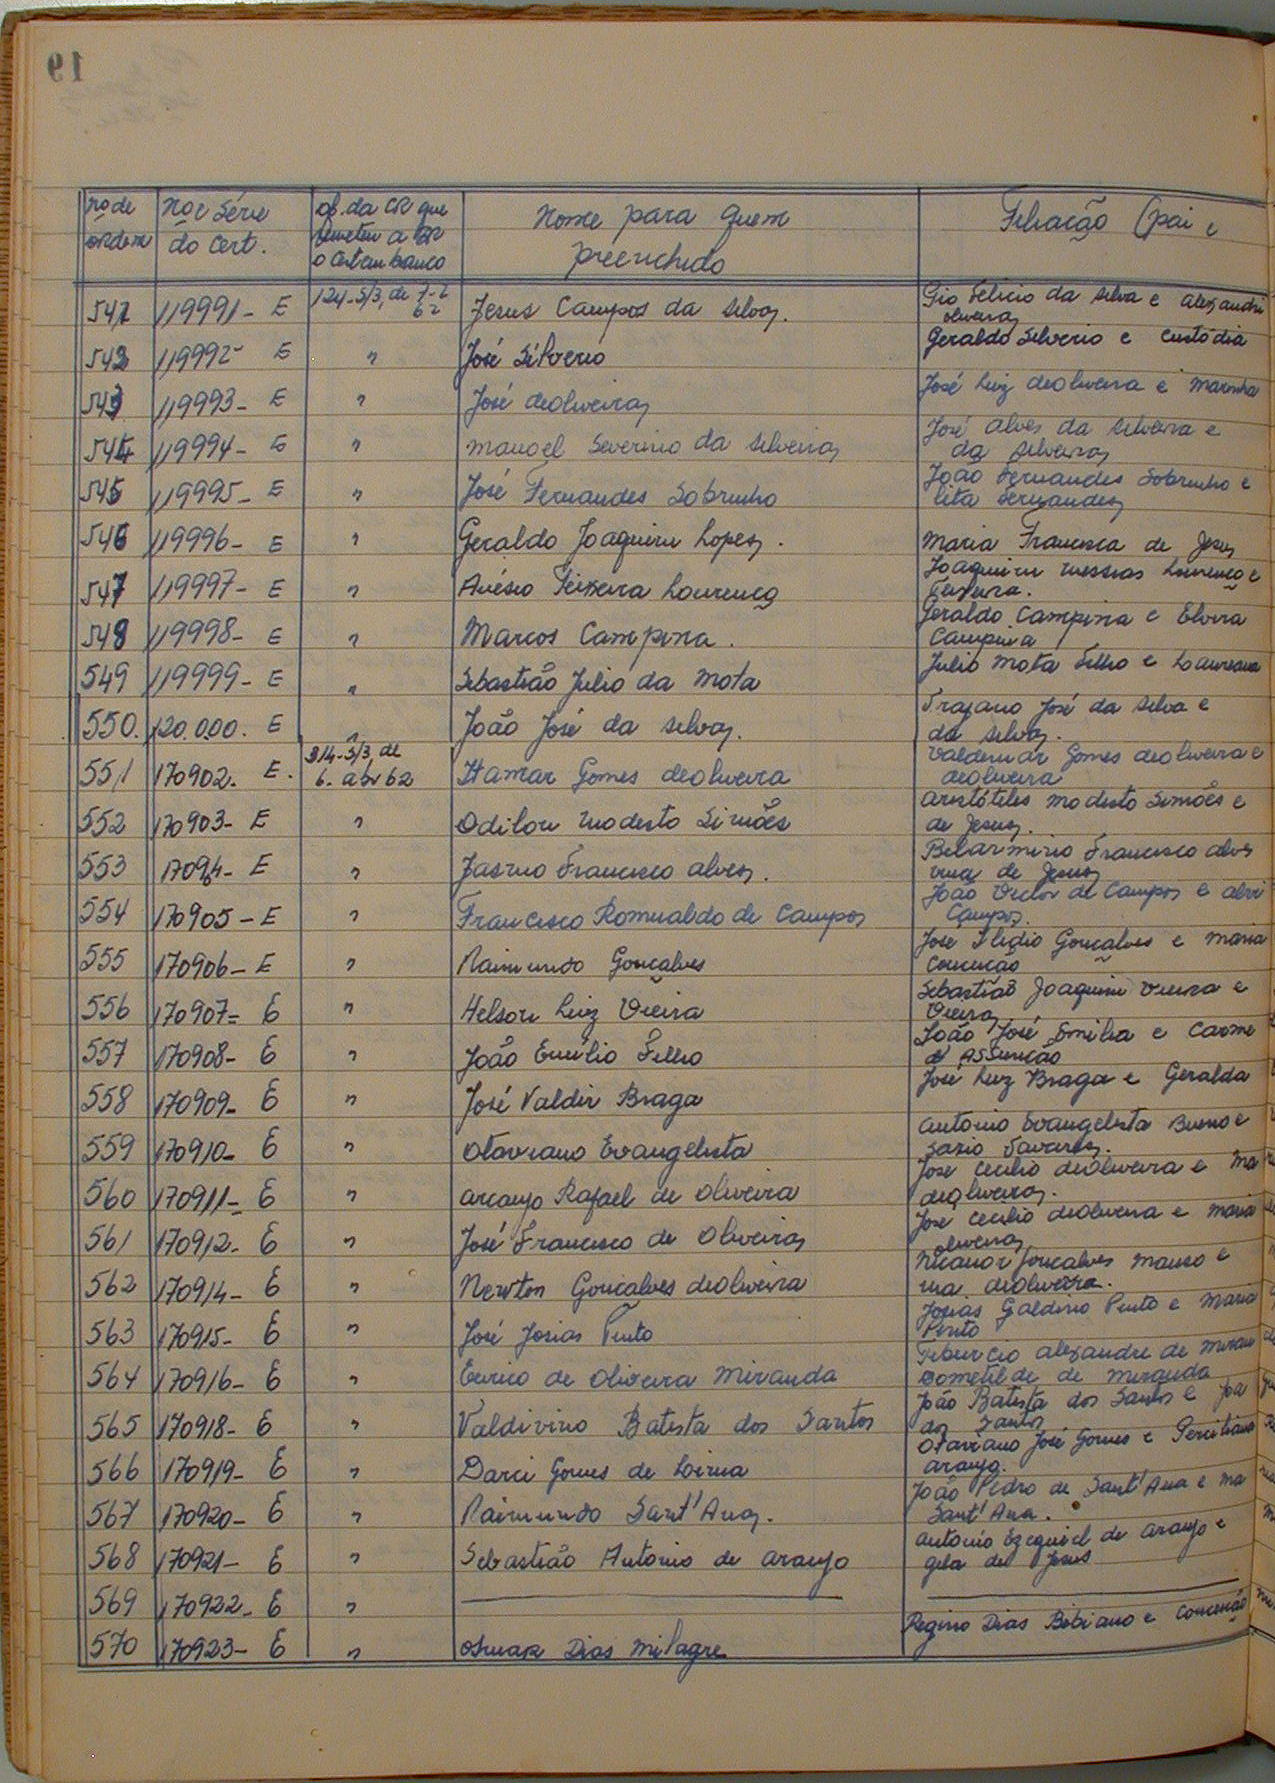 19
no de ordem | no e Série do Cert. | of. da CR que remeteu a BR o Cert em branco | Nome para quem preenchido | Filiação (pai e
541 | 119991- E | 124-S/3, de 7-2 62 | Jesus Campos da Silva. | Pio Felicio da Silva e alexandri
oliveira
542 | 119992- E | " | José Silverio | Geraldo Silverio e Custódia
543 | 119993- E | " | José de oliveira | José Luiz de oliveira e Marinha
544 | 119994- E | " | Manoel Severino da Silveira | José Alves da Silveira e
da Silveira
545 | 119995- E | " | José Fernandes Sobrinho | João Fernandes Sobrinho e
lita Fernandes
546 | 119996- E | " | Geraldo Joaquim Lopes. | Maria Francisca de Jesus
547 | 119997- E | " | Anésio Teixeira Lourenço | Joaquim Messias Lourenço e
Teixeira.
548 | 119998- E | " | Marcos Campina. | Geraldo Campina e Elvira
Campina
549 | 119999- E | " | Sebastião Julio da Mota | Julio Mota Filho e Laureana
550. | 120.000. E | " | João José da Silva. | Trajano José da Silva e
da Silva.
551 | 170902. E. | 314-S/3, de 6. abr 62 | Itamar Gomes de oliveira | Valdemar Gomes de oliveira e
de oliveira
552 | 170903- E | " | Odilon Modesto Simões | Aristóteles Modesto Simões e
de Jesus.
553 | 17094- E | " | Francisco Alves. | Belarmino Francisco alves
vina de Jesus
554 | 170905- E | " | Francisco Romualdo de Campos | João Victor de Campos e alvi
Campos.
555 | 170906- E | " | Raimundo Gonçalves | José Ilidio Gonçalves e Maria
Conceição
556 | 170907= E | " | Helson Luiz Vieira | Sebastião Joaquim Vieira e
Vieira
557 | 170908- E | " | João Emílio Filho | João José Emilia e Carme
d' Assunção
558 | 170909- E | " | José Valdir Braga | José Luiz Braga e Geralda
559 | 170910- E | " | Otaviano Evangelista | Antonio Evangelista Bueno e
Tavares.
560 | 170911- E | " | Arcanjo Rafael de Oliveira | José Cecilio de oliveira e Ma
de oliveira.
561 | 170912- E | " | José Francisco de Oliveira | José Cecilio de oliveira e Maria
oliveira
562 | 170914- E | " | Newton Gonçalves de oliveira | Nicanor Gonçalves Manso e
ria de oliveira.
563 | 170915- E | " | José Josias Pinto | Josias Galdino Pinto e Maria
Pinto
564 | 170916- E | " | Eurico de Oliveira Miranda | Tiburcio Alexandre de Miran
Dometilde de Miranda
565 | 170918- E | " | Valdivino Batista dos Santos | João Batista dos Santos e Joa
dos Santos
566 | 170919- E | " | Darci Gomes de Loirna | Otaviano José Gomes e Perciliana
Araujo.
567 | 170920- E | " | Raimundo Sant'Ana. | João Pedro de Sant'Ana e Ma
Sant'Ana.
568 | 170921- E | " | Sebastião Antonio de Araujo | Antonio Ezequiel de Araujo e
gela de Jesus
569 | 170922- E | "
570 | 170923- E | " | Osmar Dias Milagre | Regino Dias Bibiano e Conceição